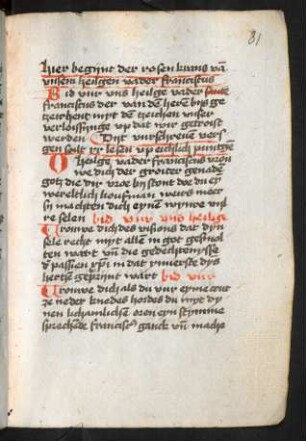 81
Hier begynt der rosen krans vā
vnsem heilgen vader franciscus
Bid vur vns heilge vader sante
franciscus der van dē herē bys ge
tzeichent myt dē tzeichen vnser
verloissunge vp dat wir getroist
werden Dyt vurschreuē ver
gen salt xx lesen vp etlich puntgē
O heilge vader franciscus vrou
we dich der groiter genadē
gotz die dyr vrae bystont doe du ey
wereltlich koufman weirs
machten dich eynē
re selen bid vur vns heilge
Vrouwe dich des visions dat dyn
sele recht myt alle in got gesmol
ten wart vn̄ die gedechtenysse
d' passien xp̄i in dat ynnerste dys
hertzē geprynt wart bid vur
Vrouwe dich als du vur eyme cruc
ze neder knedes hordes du myt dy
nen lichamlichē oren eyn stymme
sprechēde francisce ganck vn̄ mache